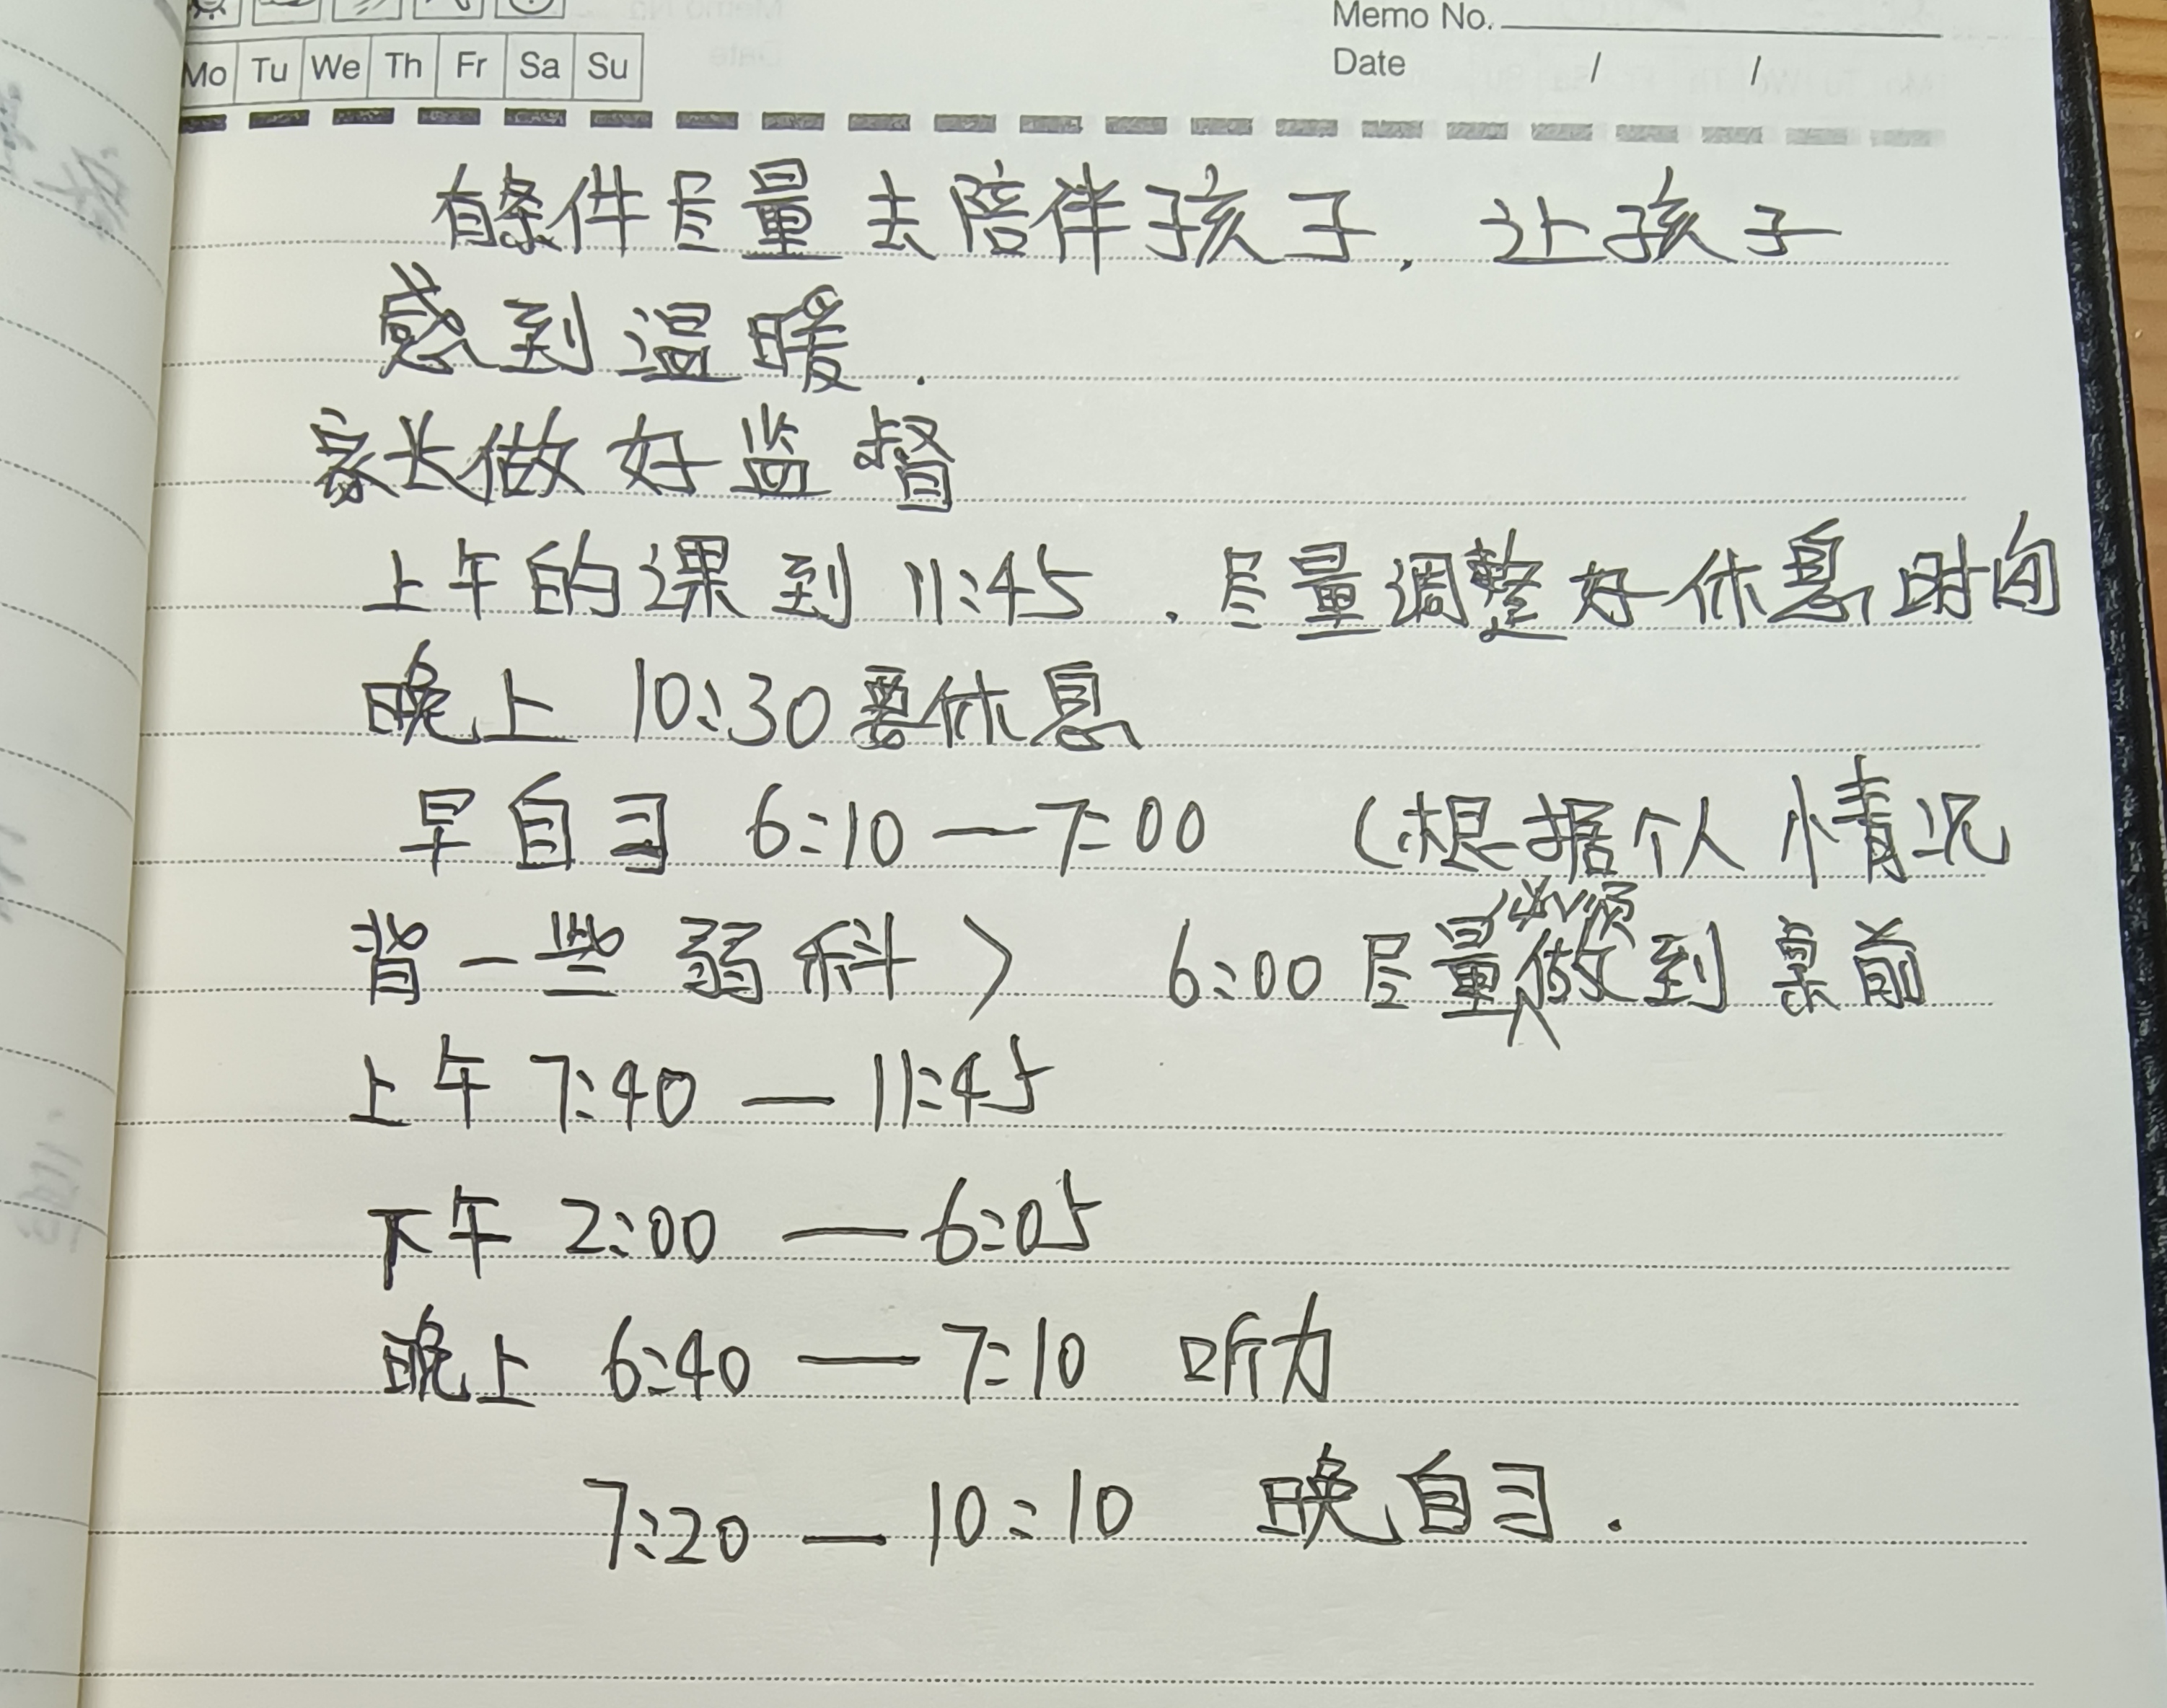 Memo No.
Mo Tu We Th Fr Sa Su
Date / /
有条件尽量去陪伴孩子,让孩子
感到温暖.
家长做好监督
上午的课到 11:45 .尽量调整好休息时间
晚上 10:30要休息
早自习 6:10—7:00 (根据个人情况
背一些弱科) 6:00 尽量必须做到桌前
上午 7:40 — 11:45
下午 2:00 — 6:05
晚上 6:40 — 7:10 听力
7:20 — 10:10 晚自习.